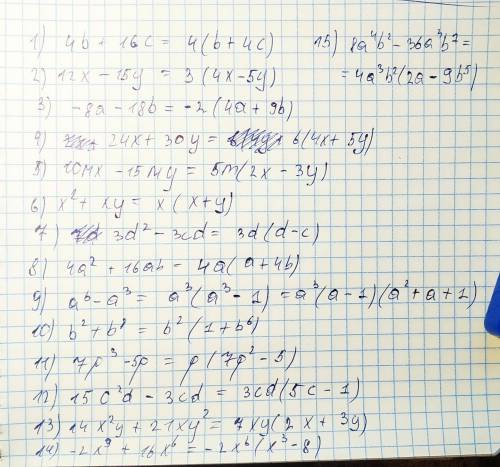 1) 4b + 16c = 4(b + 4c)
2) 12x - 15y = 3(4x - 5y)
3) -8a - 18b = -2(4a + 9b)
4) 24x + 30y = 6(4x + 5y)
5) 10mx - 15my = 5m(2x - 3y)
6) x² + xy = x(x + y)
7) 3d² - 3cd = 3d(d - c)
8) 4a² + 16ab = 4a(a + 4b)
9) a⁶ - a³ = a³(a³ - 1) = a³(a - 1)(a² + a + 1)
10) b² + b⁸ = b²(1 + b⁶)
11) 7p³ - 5p = p(7p² - 5)
12) 15c²d - 3cd = 3cd(5c - 1)
13) 14x²y + 21xy² = 7xy(2x + 3y)
14) -2x⁹ + 16x⁶ = -2x⁶(x³ - 8)
15) 8a⁴b² - 36a³b⁷ =
= 4a³b²(2a - 9b⁵)